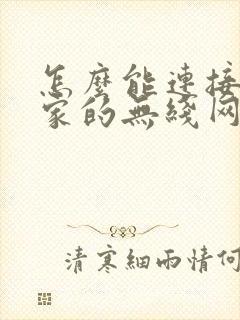 怎麼能連接
家的無綫网
清寒細雨情何